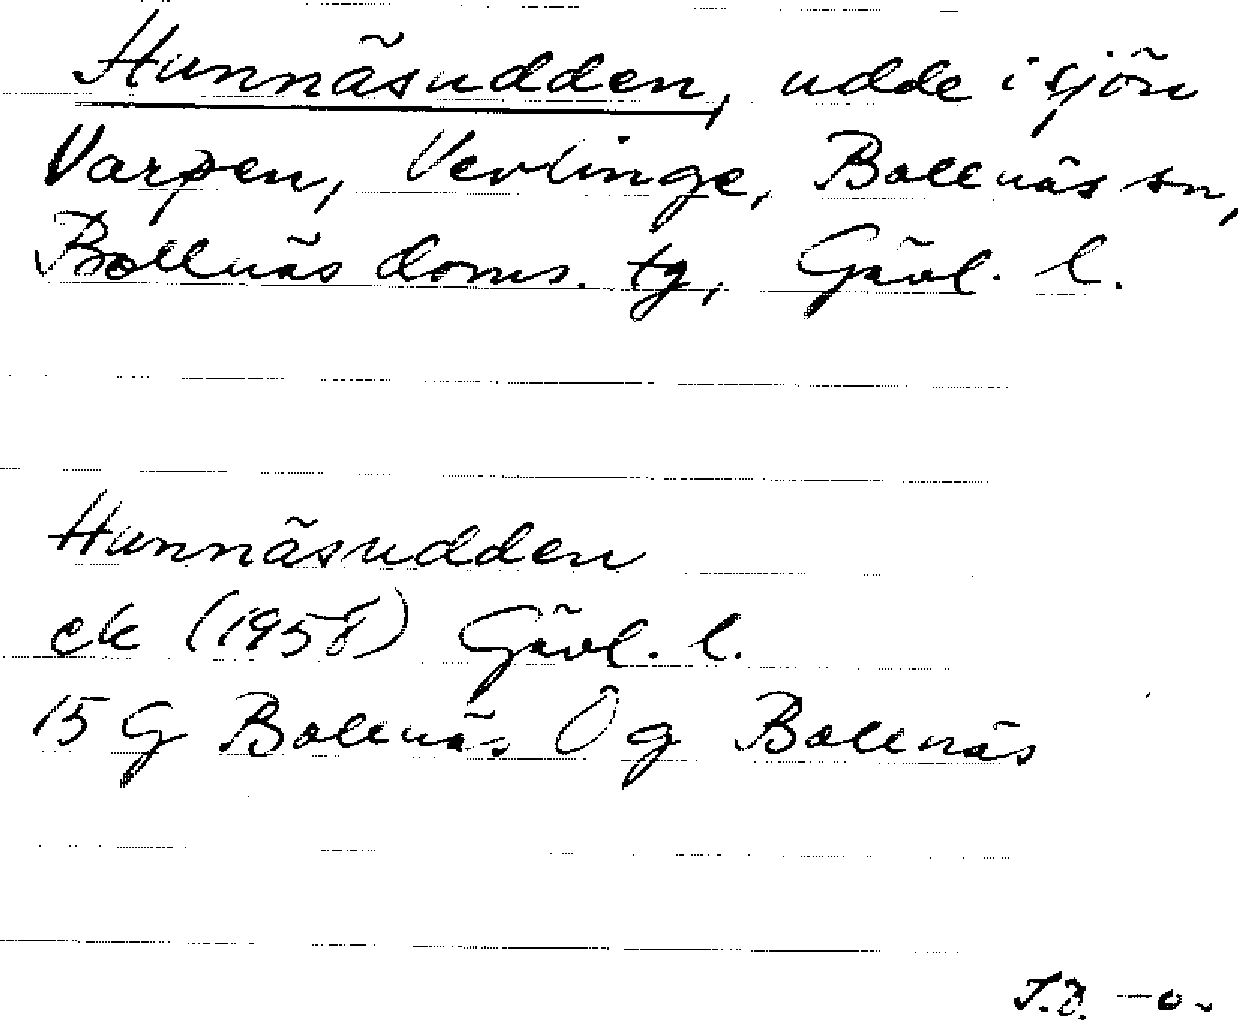 Hunnäsudden, udde i sjön
Varpen, Vevlinge, Bollnäs sn,
Bollnäs doms. tg, Gävl. l.
Hunnäsudden
ek (1958) Gävl. l.
15 G Bollnäs Ög Bollnäs